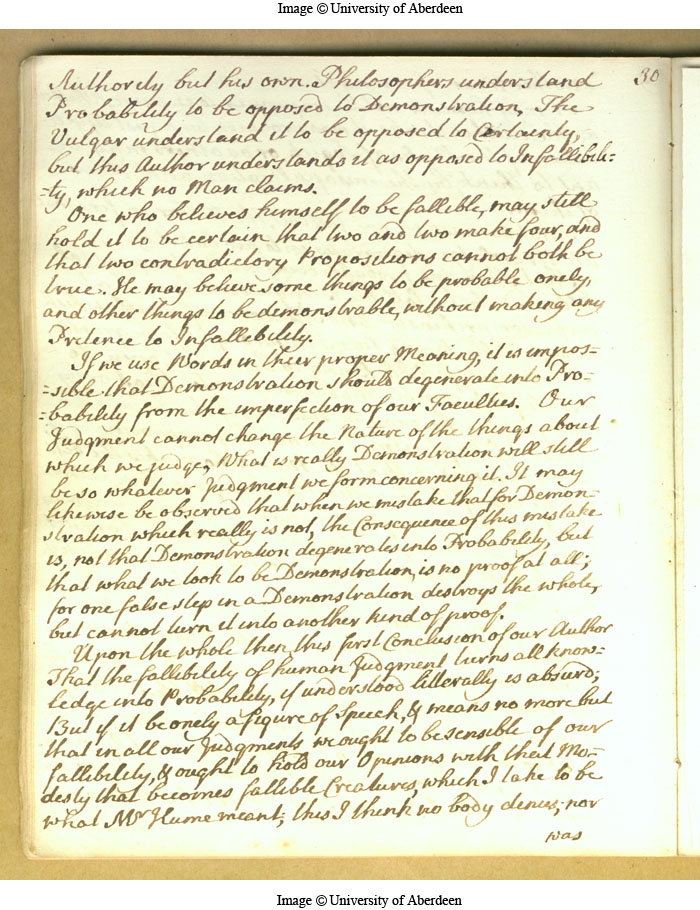 Image © University of Aberdeen
30
Authority but his own. Philosophers understand
Probability to be opposed to Demonstration, The
Vulgar understand it to be opposed to Certainty,
but this Author understands it as opposed to Infallibili=
=ty, which no Man claims.
One who believes himself to be fallible, may still
hold it to be certain that two and two make four, and
that two contradictory Propositions cannot both be
true. He may believe some things to be probable onely,
and other things to be demonstrable, without making any
Pretence to Infallibility.
If we use Words in their proper Meaning, it is impos=
=sible that Demonstration should degenerate into Pro=
=bability from the imperfection of our Faculties. Our
Judgment cannot change the Nature of the things about
which we judge, What is really Demonstration will still
be so whatever Judgment we form concerning it. It may
likewise be observed that when we mistake that for Demon=
stration which really is not, the Consequence of this mistake
is, not that Demonstration degenerates into Probability, but
that what we took to be Demonstration, is no proof at all;
for one false step in a Demonstration destroys the whole,
but cannot turn it into another kind of proof.
Upon the whole then, this first Conclusion of our Author
That the fallibility of human Judgment turns all know=
ledge into Probability, if understood litterally is absurd;
But if it be onely a figure of Speech, & means no more but
that in all our Judgments we ought to be sensible of our
fallibility, & ought to hold our Opinions with that Mo=
desty that becomes fallible Creatures, which I take to be
what Mr Hume meant; this I think no body denies, nor
was
Image © University of Aberdeen